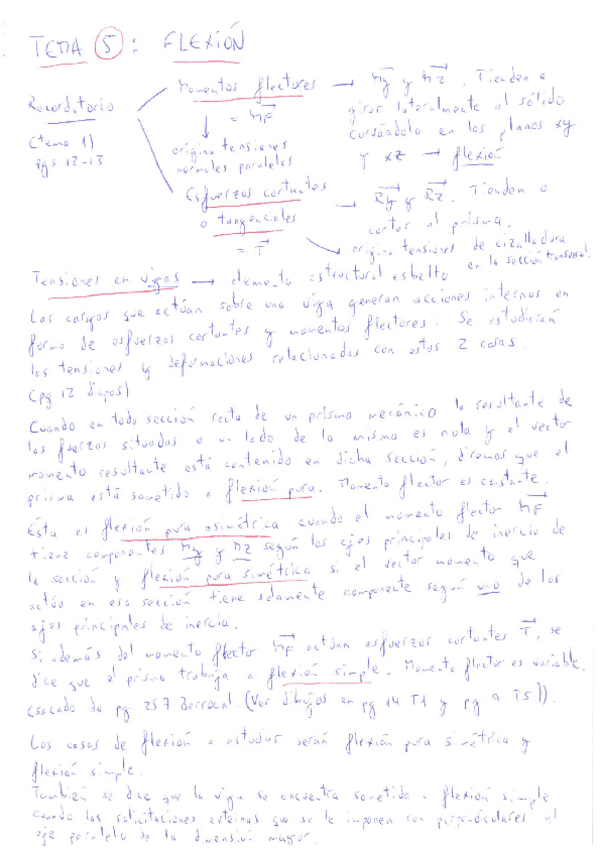 TEMA 5 : FLEXIÓN
Momentos flectores → My y Mz. Tienden a
Recordatorio = MF girar lateralmente al sólido
curvándolo en los planos xy
(tema 1) origina tensiones y xz → flexión
pgs 12-13 normales paralelas
Esfuerzos cortantes → Ry y Rz. Tienden a
o tangenciales cortar al prisma.
= T origina tensiones de cizalladura
en la sección transversal.
Tensiones en vigas → elemento estructural esbelto
Las cargas que actúan sobre una viga generan acciones internas en
forma de esfuerzos cortantes y momentos flectores. Se estudiarán
las tensiones y deformaciones relacionadas con estas 2 cosas.
(pg 12 diapos)
Cuando en toda sección recta de un prisma mecánico la resultante de
las fuerzas situadas a un lado de la misma es nula y el vector
momento resultante está contenido en dicha sección, diremos que el
prisma está sometido a flexión pura. Momento flector es constante.
Ésta es flexión pura asimétrica cuando el momento flector MF
tiene componentes My y Mz según los ejes principales de inercia de
la sección y flexión pura simétrica si el vector momento que
actúa en esa sección tiene solamente componente según uno de los
ejes principales de inercia.
Si además del momento flector MF actúan esfuerzos cortantes T, se
dice que el prisma trabaja a flexión simple. Momento flector es variable.
(sacado de pg 257 Berrocal (Ver dibujos en pg 14 T1 y pg 9 T5)).
Los casos de flexión a estudiar serán flexión pura simétrica y
flexión simple.
También se dice que la viga se encuentra sometida a flexión simple
cuando las solicitaciones externas que se le imponen son perpendiculares al
eje paralelo de la dimensión mayor.